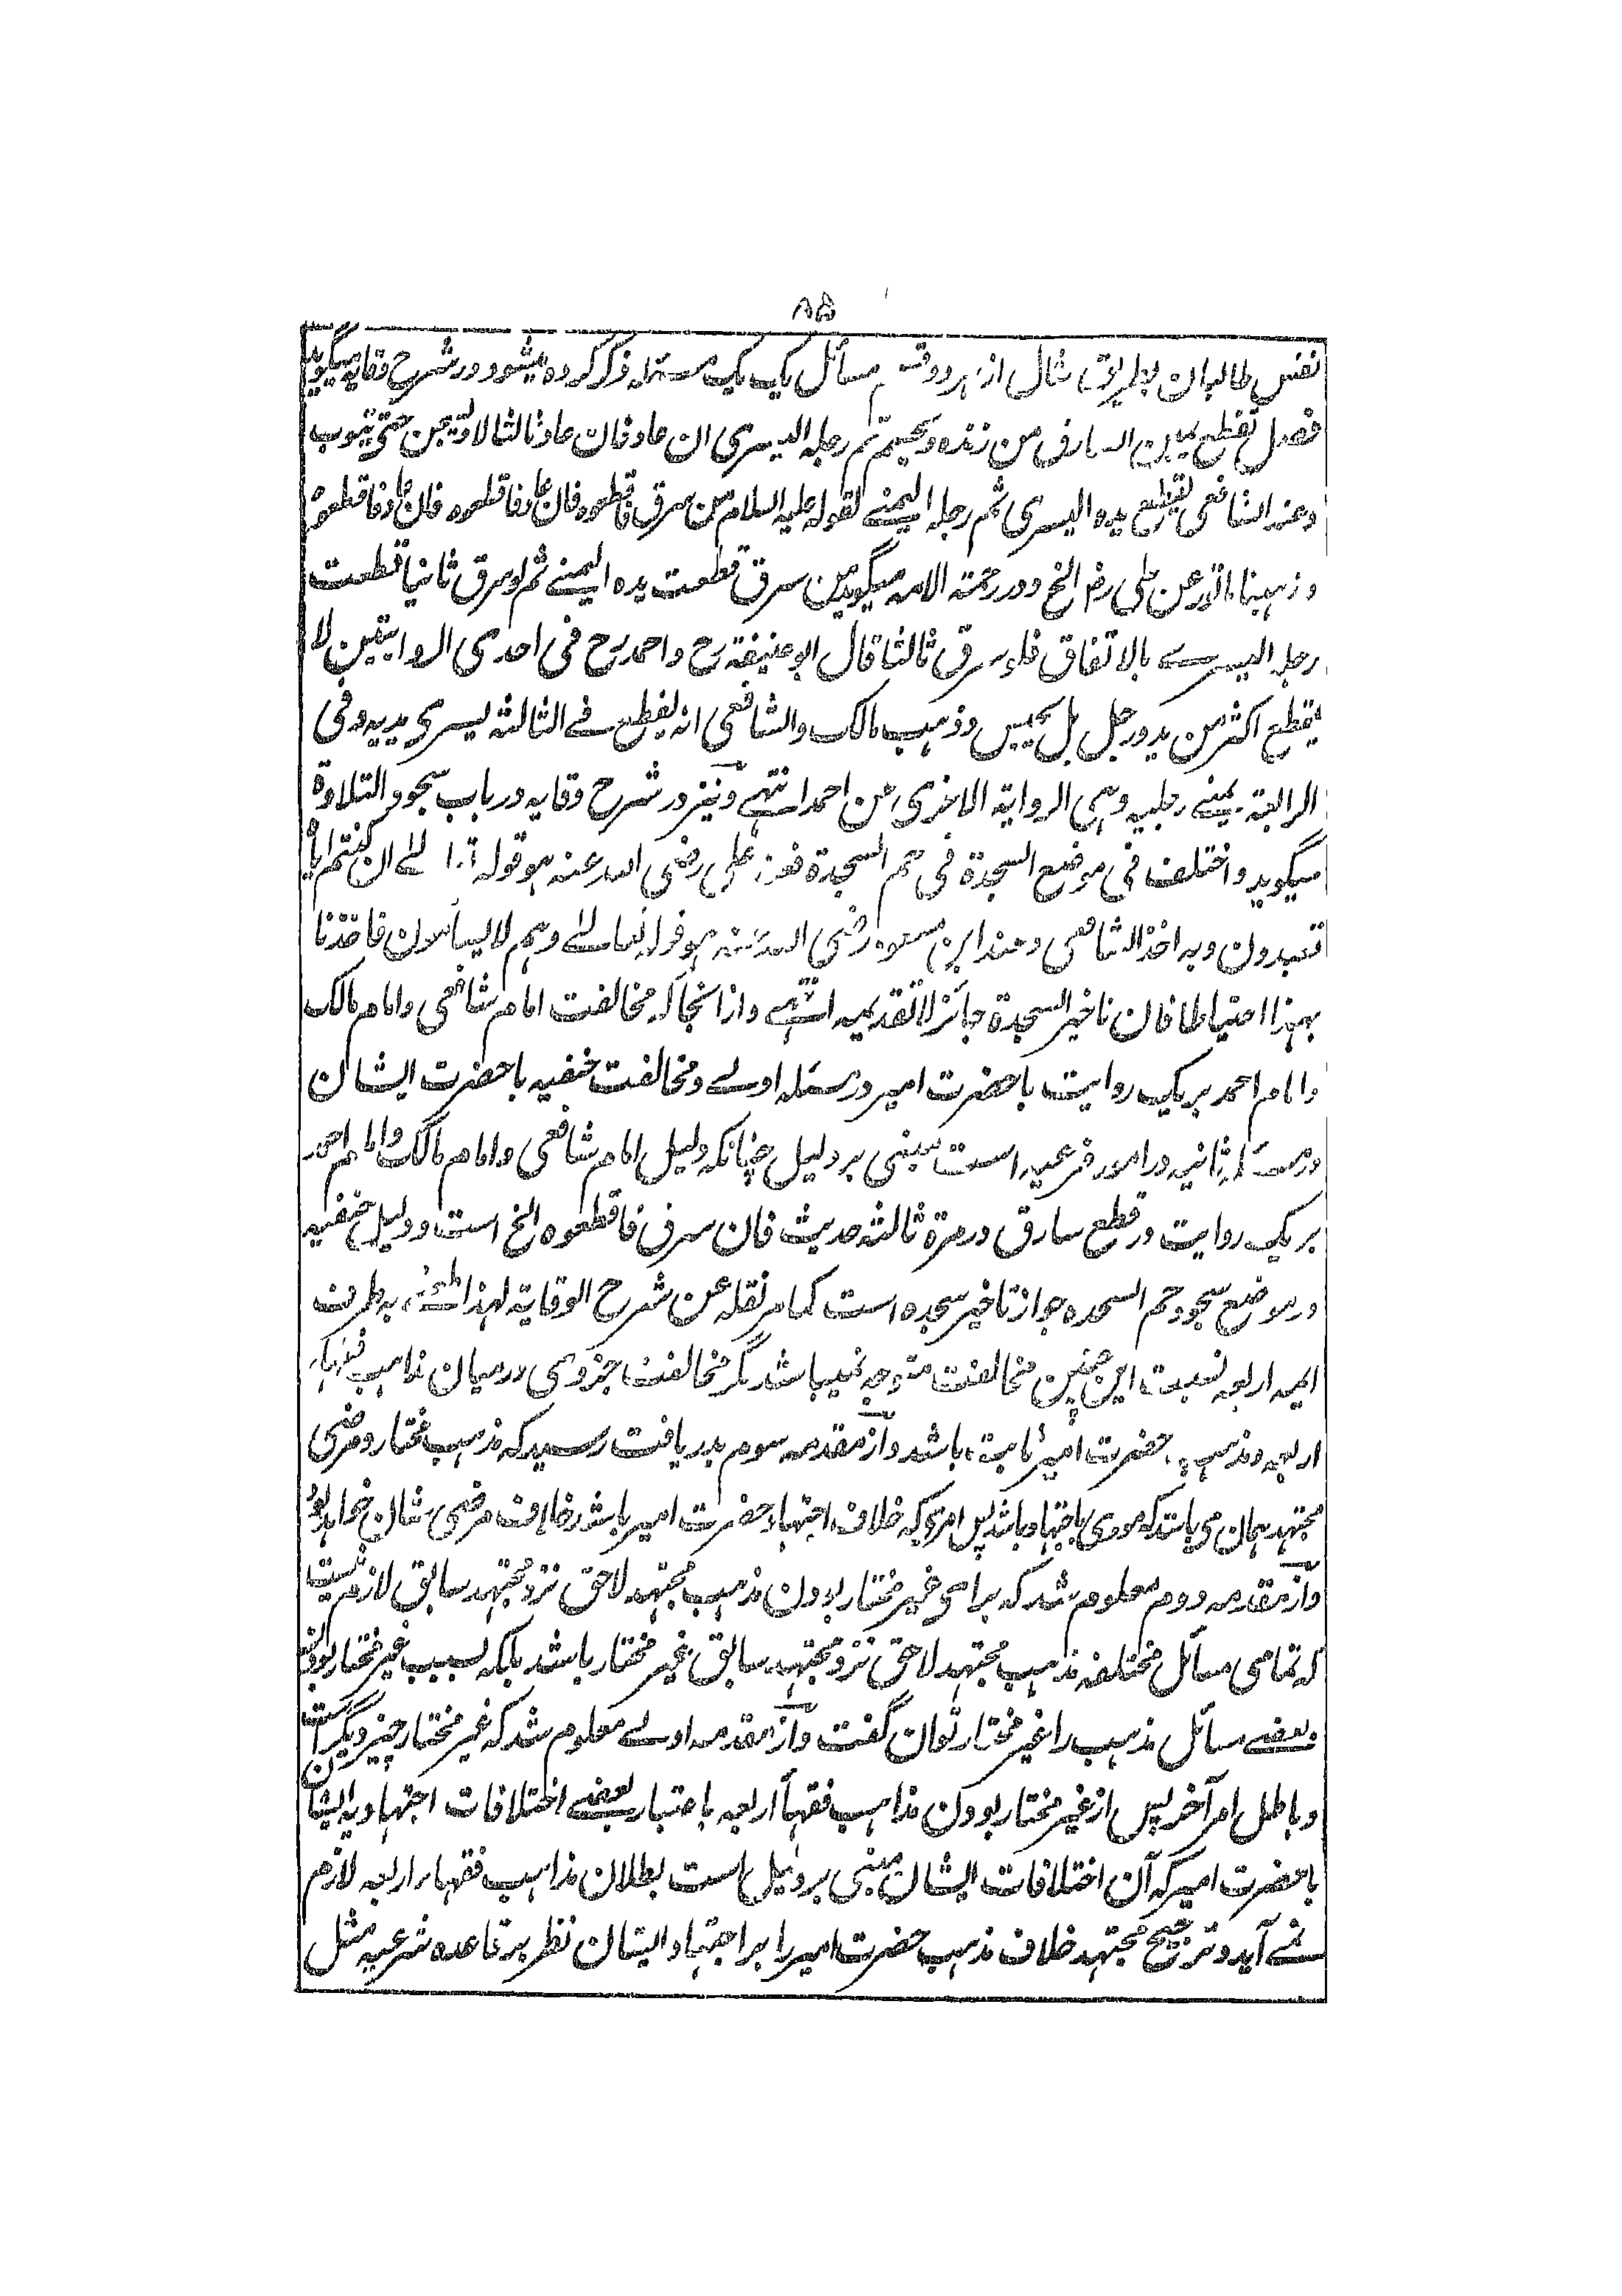 ۸۵
نفس طالبان بطریق مثال از هر دو قسم مسائل یک یک مسئله ذکر کرده میشود در شرح وقایه میگوید
فصل تقطع یمین السارق من زنده ویحسم ثم رجله الیسری ان عاد فان عاد ثالثا لا ویسجن حتی یتوب
وعند الشافعی یقطع یده الیسری ثم رجله الیمنے لقوله علیه السلام من سرق فاقطعوه فان عاد فاقطعوه فان عاد فاقطعوه
ومذهبنا ماثور عن علی رض الخ و در رحمة الامه میگوید من سرق قطعت یده الیمنے ثم لو سرق ثانیا قطعت
رجله الیسرے بالاتفاق فلو سرق ثالثا قال ابو حنیفة رح و احمد رح فی احدی الروایتین لا
یقطع اکثر من ید و رجل بل یحبس و ذهب مالک والشافعی انه یقطع فے الثالثه یسری یدیه وفی
الرابعة یمنے رجلیه وهی الروایة الاخری عن احمد انتهے ونیز در شرح وقایه در باب سجود التلاوة
میگوید واختلف فی موضع السجدة فی حم السجدة فعند علی رضی الله عنه هو قوله تعالے ان کنتم ایاه
تعبدون وبه اخذ الشافعی وعند ابن مسعود رضی الله عنه هو قوله تعالے وهم لا یسأمون فاخذنا
بهذا احتیاطا فان تاخیر السجدة جائز لا تقدیمه انتهے و از انجا که مخالفت امام شافعی و امام مالک
و امام احمد بریک روایت با حضرت امیر در مسئله اولے و مخالفت حنفیه با حضرت ایشان
در مسئله ثانیه در امور فرعیه است مبنی بر دلیل چنانکه دلیل امام شافعی و امام مالک و امام احمد
بریک روایت در قطع سارق در مرة ثالثه حدیث فان سرق فاقطعوه الخ است و دلیل حنفیه
در موضع سجود حم السجده جواز تاخیر سجده است کما مر نقله عن شرح الوقایة لهذا طعنے بطرف
ایمه اربعه نسبت این چنین مخالفت متوجه نمیباشد گر مخالفت جزوی درمیان مذاهب فقهاے
اربعه و مذهب حضرت امیر ثابت باشد و از مقدمه سوم بدریافت رسید که مذهب مختار و مرضی
مجتهد همان می باشد که مودی باجتهاد باشد پس امری که خلاف اجتهاد حضرت امیر باشد خلاف مرضی شان خواهد بود
و از مقدمه دوم معلوم شد که برای غیر مختار بودن مذهب مجتهد لاحق نزد مجتهد سابق لازم نیست
که تمامی مسائل مختلفه مذهب مجتهد لاحق نزد مجتهد سابق غیر مختار باشد بلکه بسبب غیر مختار بودن
بعضے مسائل مذهب را غیر مختار توان گفت و از مقدمه اولے معلوم شد که غیر مختار چیز دیگر است
و باطل امر آخر پس از غیر مختار بودن مذاهب فقهاء اربعه باعتبار بعضے اختلافات اجتهادیه ایشان
با حضرت امیر که آن اختلافات ایشان مبنی بر دلیل است بطلان مذاهب فقهاء اربعه لازم
نمے آید و ترجیح مجتهد خلاف مذهب حضرت امیر را بر اجتهاد ایشان نظر بر قاعده شرعیه مثل